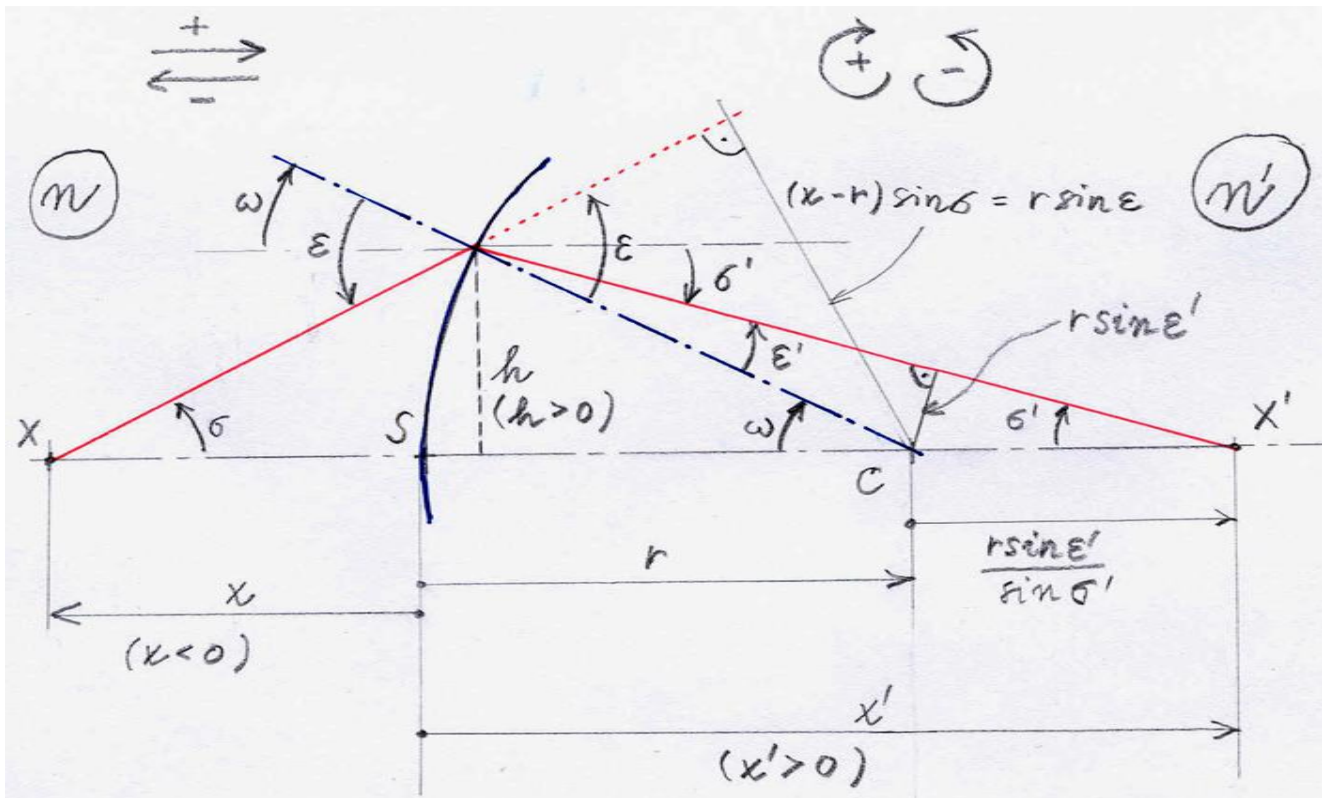 +
-
+
-
n
n'
ω
ε
(x-r)sinσ = r sinε
ε
σ'
r sinε'
ε'
h
(h>0)
X
σ
S
ω
σ'
X'
C
r
r sinε'
sinσ'
x
(x<0)
x'
(x'>0)